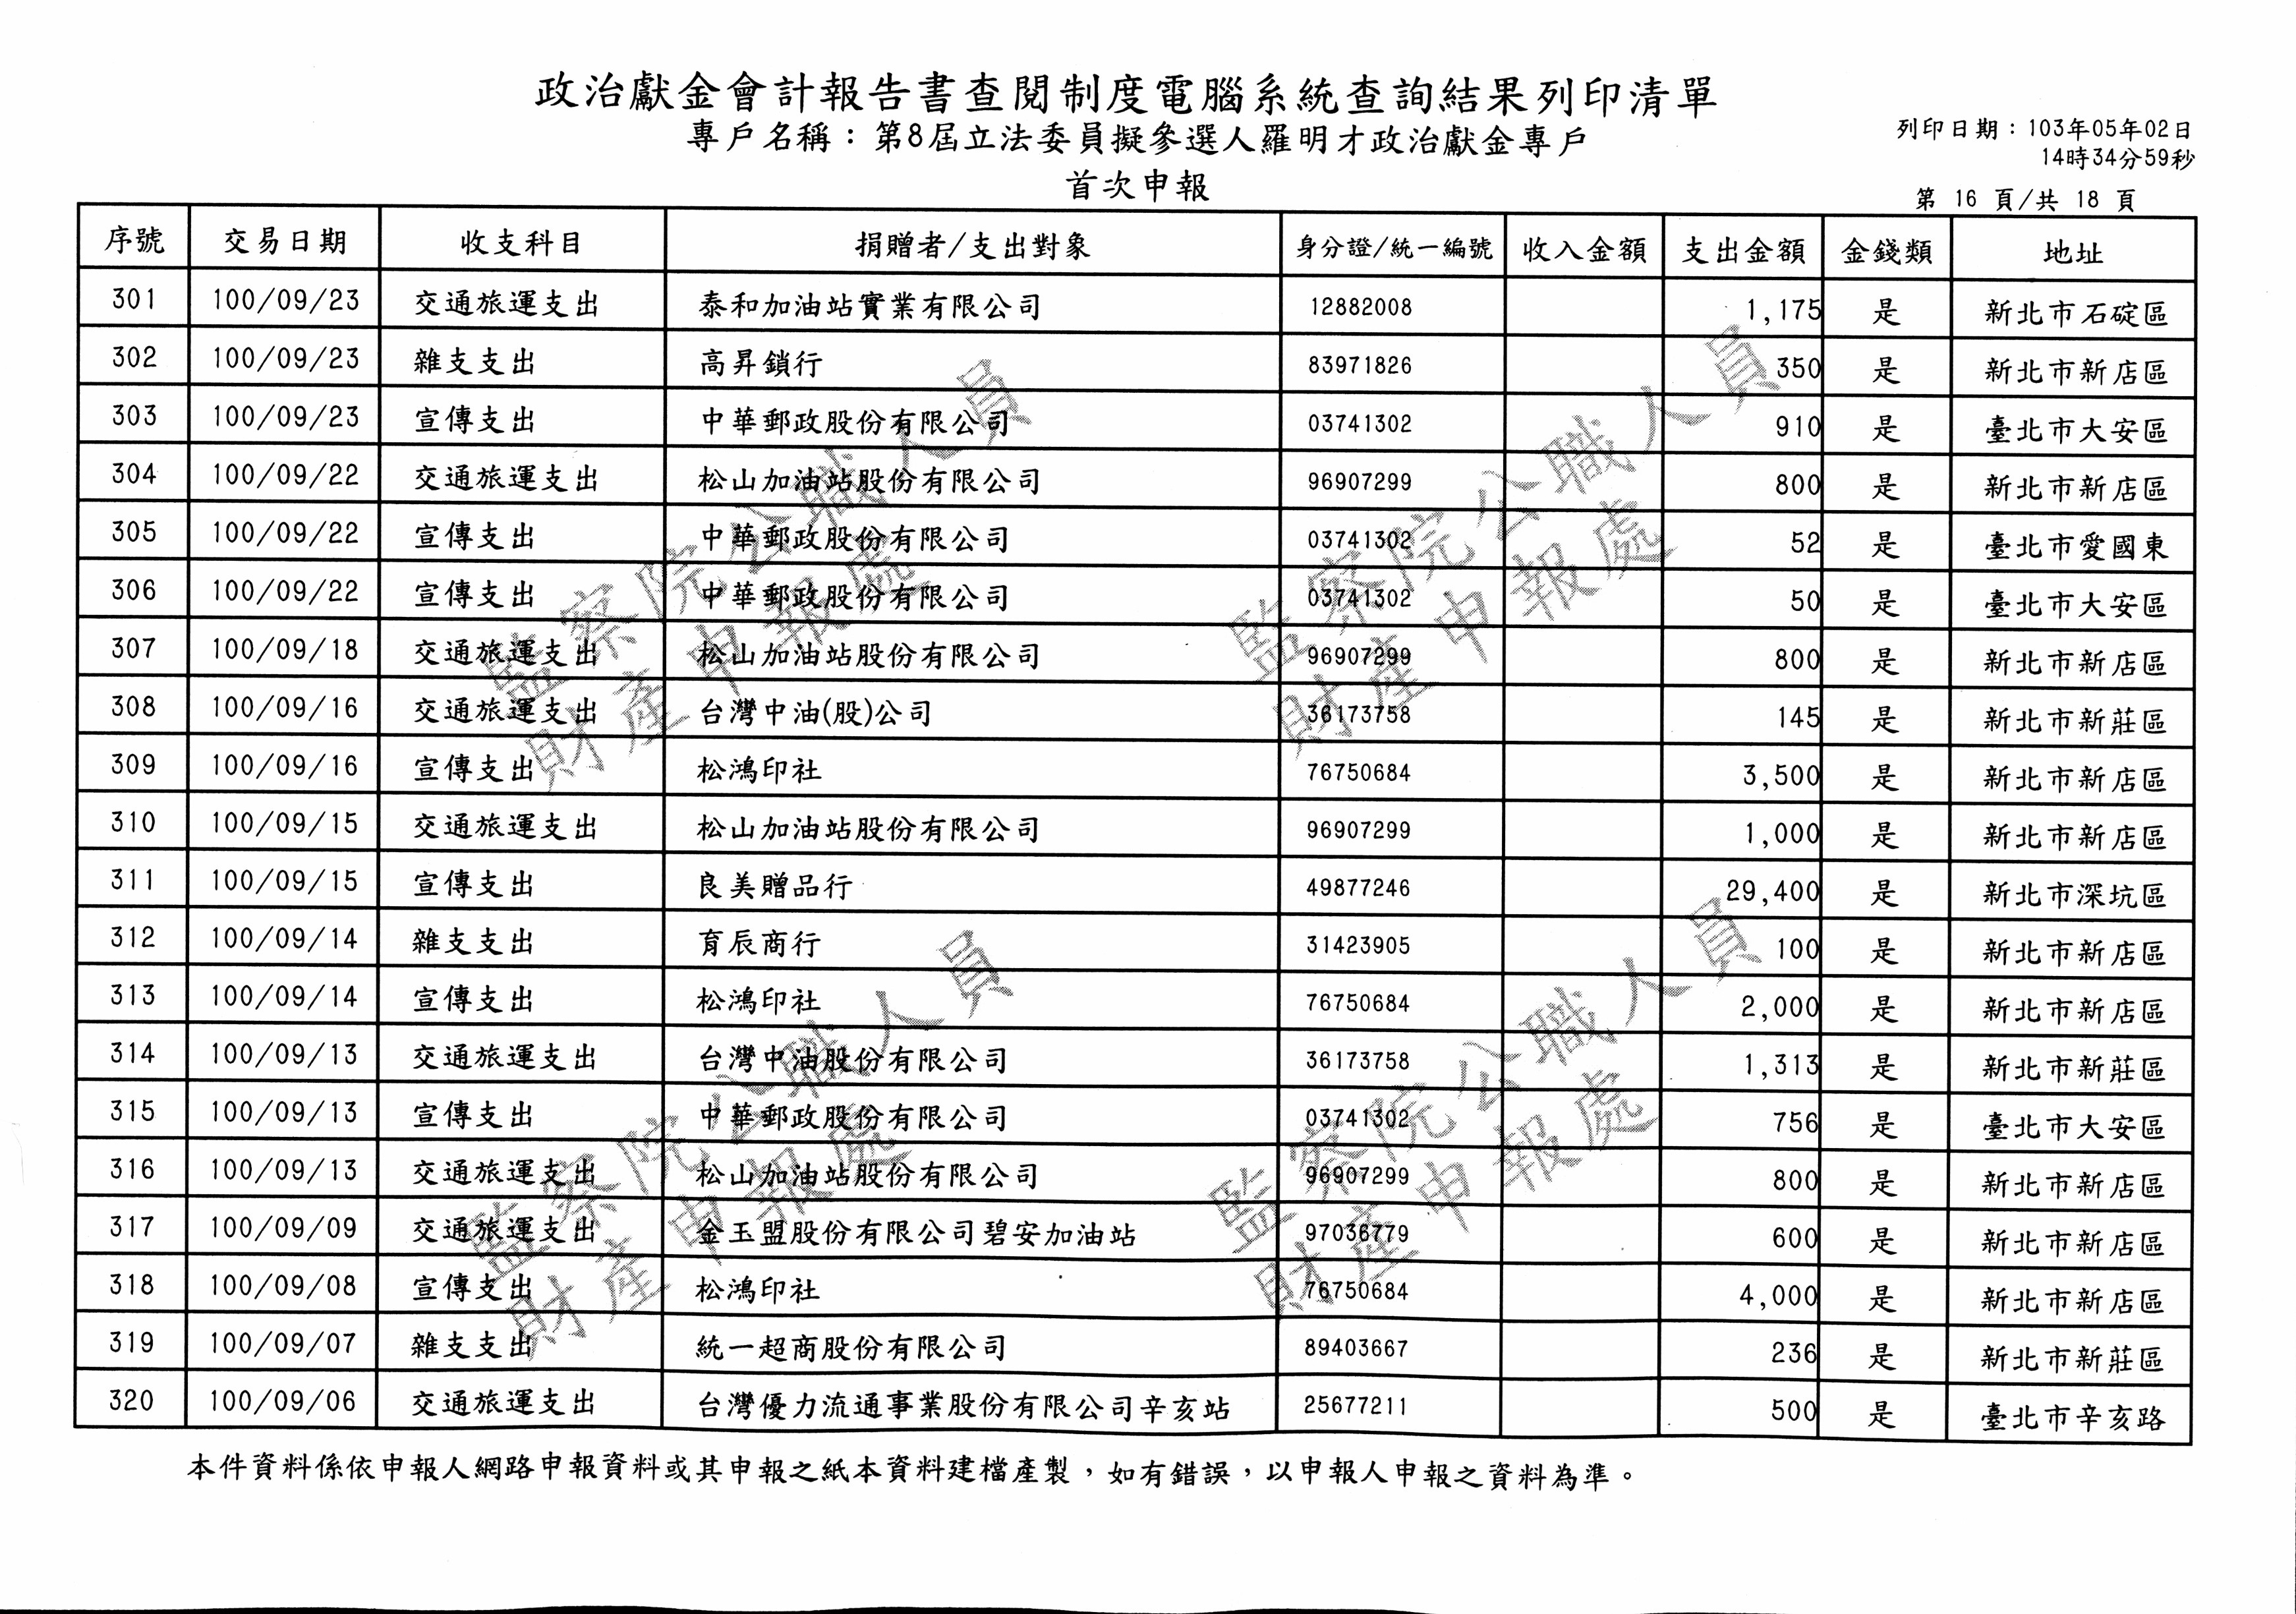 政治獻金會計報告書查閱制度電腦系統查詢結果列印清單
專戶名稱：第8屆立法委員擬參選人羅明才政治獻金專戶
首次申報
列印日期：103年05年02日
14時34分59秒
第 16 頁/共 18 頁
序號 交易日期 收支科目 捐贈者/支出對象 身分證/統一編號 收入金額 支出金額 金錢類 地址
301 100/09/23 交通旅運支出 泰和加油站實業有限公司 12882008 1,175 是 新北市石碇區
302 100/09/23 雜支支出 高昇鎖行 83971826 350 是 新北市新店區
303 100/09/23 宣傳支出 中華郵政股份有限公司 03741302 910 是 臺北市大安區
304 100/09/22 交通旅運支出 松山加油站股份有限公司 96907299 800 是 新北市新店區
305 100/09/22 宣傳支出 中華郵政股份有限公司 03741302 52 是 臺北市愛國東
306 100/09/22 宣傳支出 中華郵政股份有限公司 03741302 50 是 臺北市大安區
307 100/09/18 交通旅運支出 松山加油站股份有限公司 96907299 800 是 新北市新店區
308 100/09/16 交通旅運支出 台灣中油(股)公司 36173758 145 是 新北市新莊區
309 100/09/16 宣傳支出 松鴻印社 76750684 3,500 是 新北市新店區
310 100/09/15 交通旅運支出 松山加油站股份有限公司 96907299 1,000 是 新北市新店區
311 100/09/15 宣傳支出 良美贈品行 49877246 29,400 是 新北市深坑區
312 100/09/14 雜支支出 育辰商行 31423905 100 是 新北市新店區
313 100/09/14 宣傳支出 松鴻印社 76750684 2,000 是 新北市新店區
314 100/09/13 交通旅運支出 台灣中油股份有限公司 36173758 1,313 是 新北市新莊區
315 100/09/13 宣傳支出 中華郵政股份有限公司 03741302 756 是 臺北市大安區
316 100/09/13 交通旅運支出 松山加油站股份有限公司 96907299 800 是 新北市新店區
317 100/09/09 交通旅運支出 金玉盟股份有限公司碧安加油站 97036779 600 是 新北市新店區
318 100/09/08 宣傳支出 松鴻印社 76750684 4,000 是 新北市新店區
319 100/09/07 雜支支出 統一超商股份有限公司 89403667 236 是 新北市新莊區
320 100/09/06 交通旅運支出 台灣優力流通事業股份有限公司辛亥站 25677211 500 是 臺北市辛亥路
本件資料係依申報人網路申報資料或其申報之紙本資料建檔產製，如有錯誤，以申報人申報之資料為準。
監察院公職人員
財產申報處
監察院公職人員
財產申報處
監察院公職人員
財產申報處
監察院公職人員
財產申報處